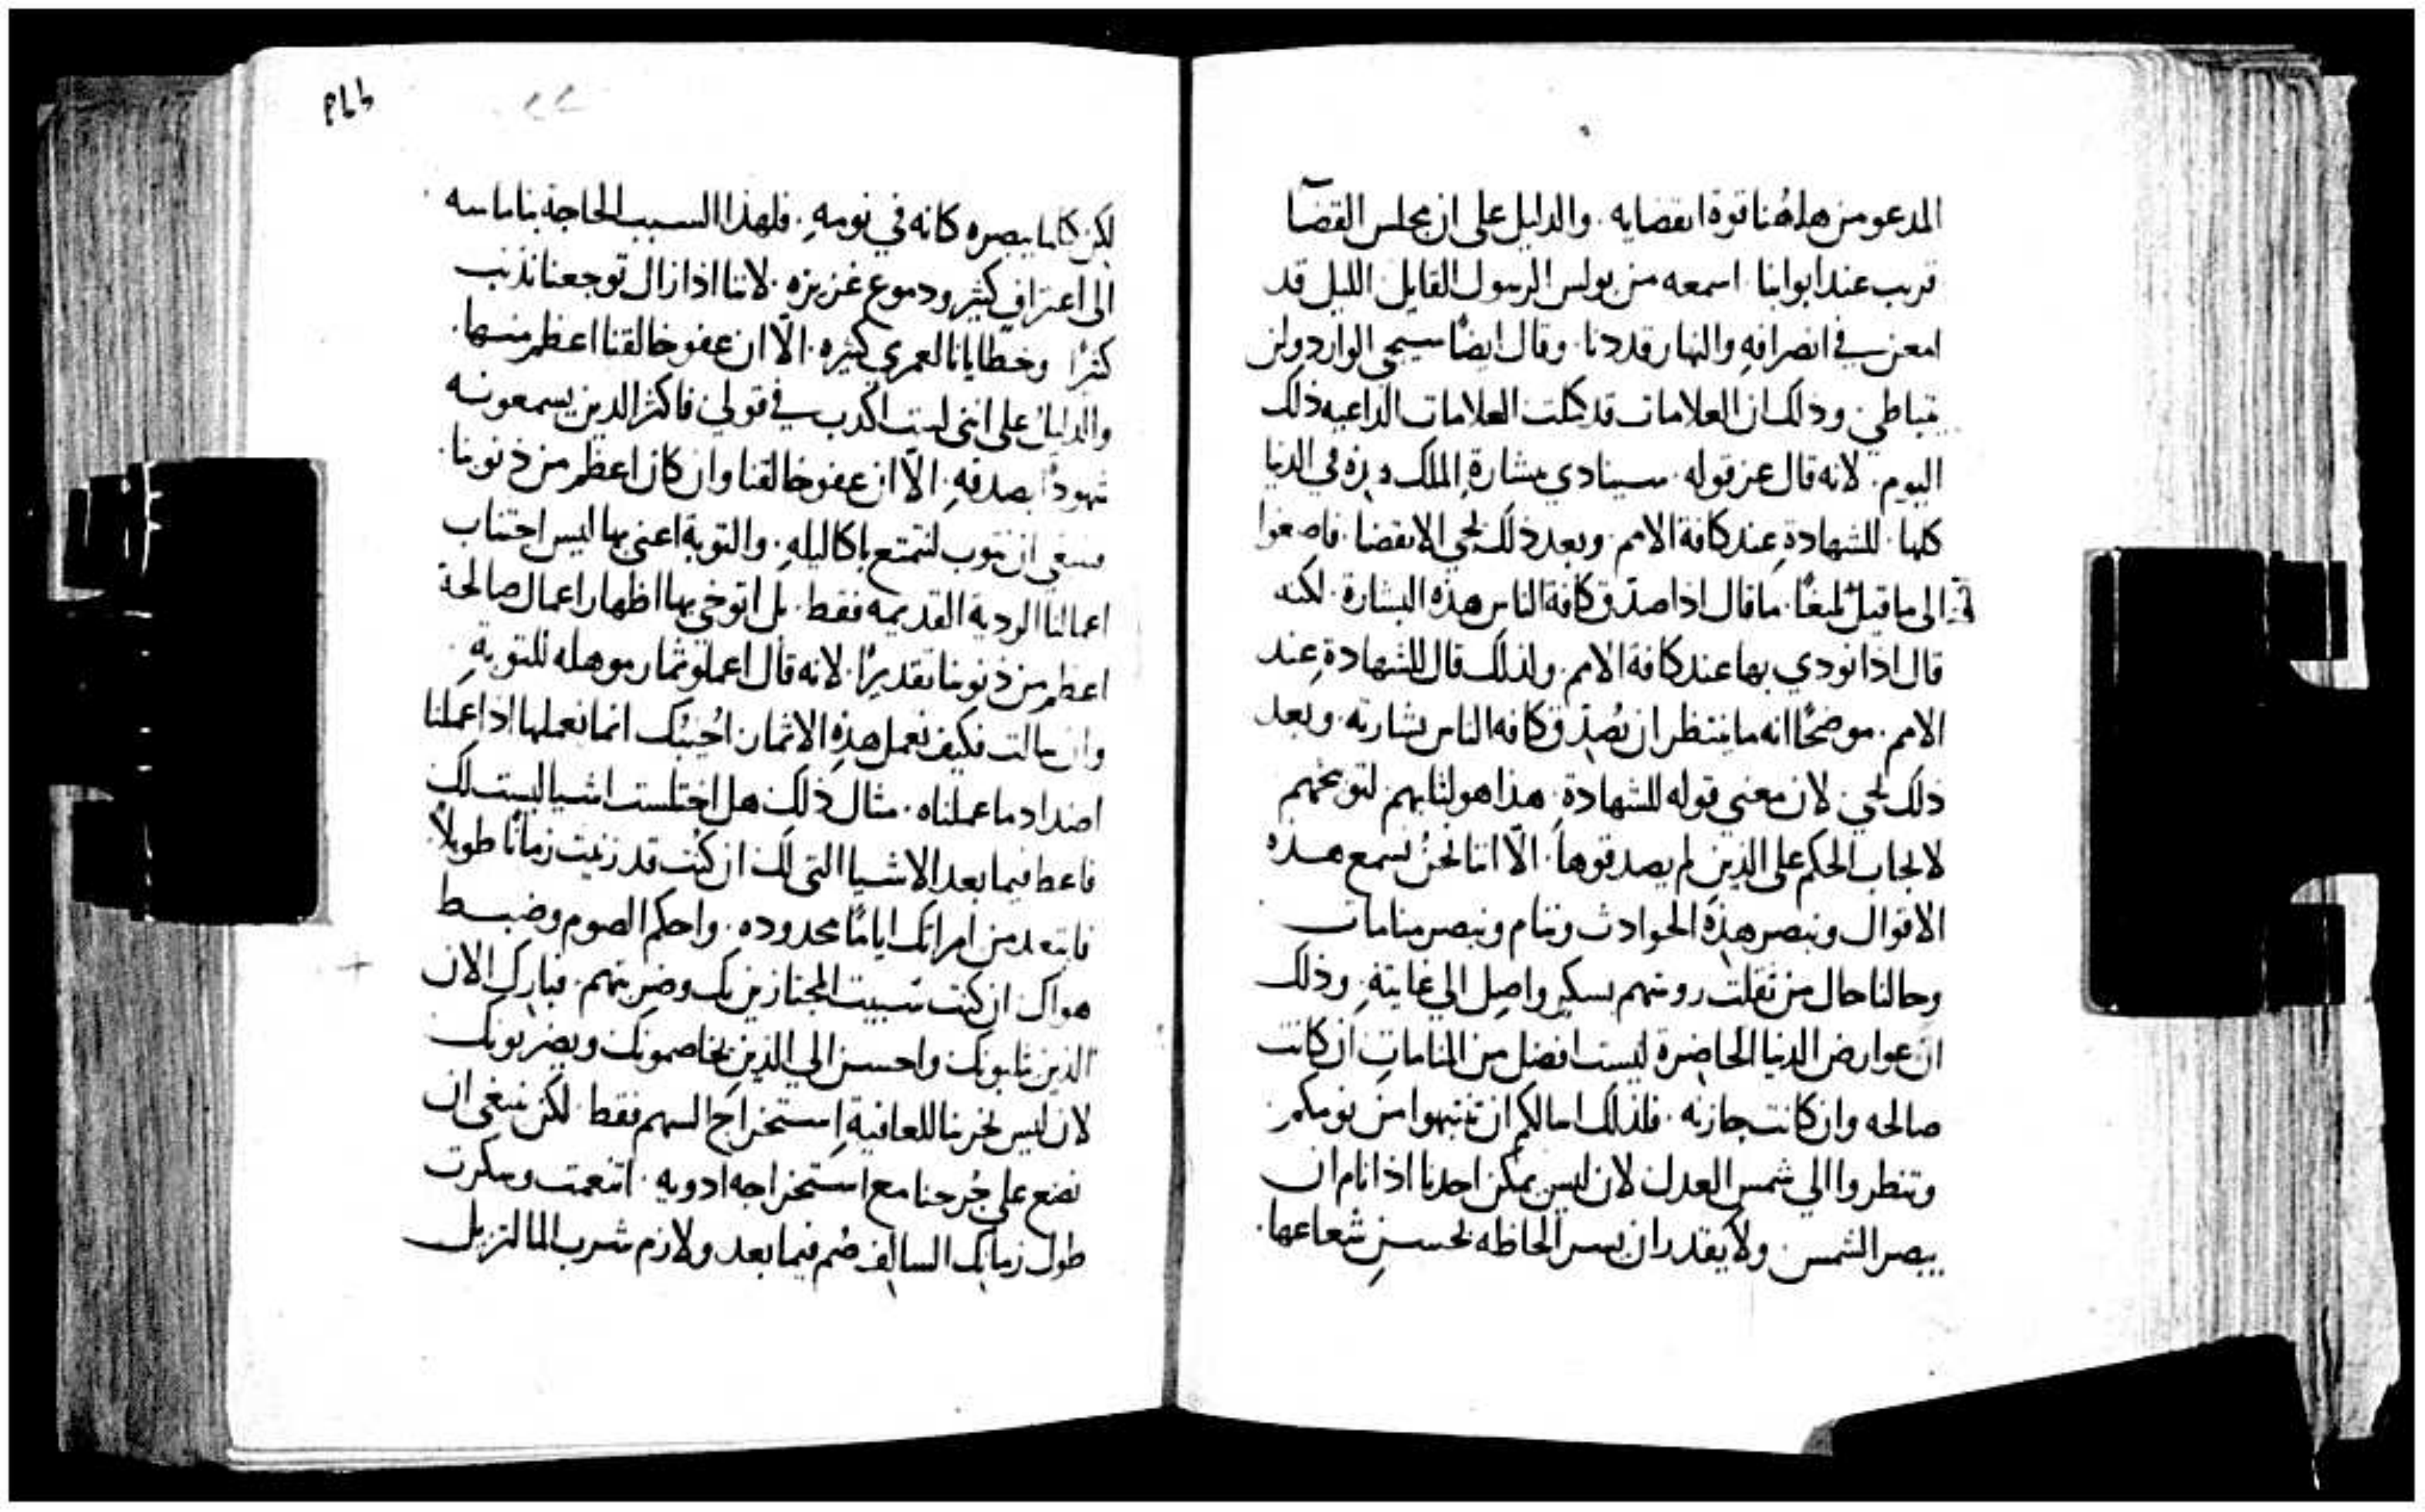 المدعو من هاهُنا قوة انقضايه . والدليل على ان مجلس القضآ
قريب عند ابوابنا اسمعه من بولس الرسول القايل الليل قد
امعن في انصرافهِ والنهار قد دنا . وقال ايضًا سيجي الوارد ولن
يتباطي . وذلك ان العلامات قد كملت العلامات الداعيه ذلك
اليوم . لانه قال عز قوله . سينادي ببشارةِ الملك هذه في الدنيا
كلها . للشهادةِ عند كافة الامم . وبعد ذلك يجي الانقضا . فاصغوا
الى ما قيل بليغًا . ما قال اذا صدّق كافة الناس هذه البشارة . لكنه
قال اذا نودي بها عند كافة الامم . ولذلك قال للشهادةِ عند
الامم . موضحًا انه ما ينتظر ان يُصدّق كافه الناس بشارته . وبعد
ذلك يجي . لان معني قوله للشهادةِ . هذا هو لثلبهم لتوبيخهم
لايجاب الحكم على الذين لم يصدقوها . الّا اننا نحنُ نسمع هذه
الاقوال ونبصر هذهِ الحوادث وننام ونبصر منامات
وحالنا حال من ثقلت روسهم بسكرٍ واصلٍ الي غايتهِ . وذلك
ان عوارض الدنيا الحاضرة ليست افضل من المنامات ان كانت
صالحه وان كانت حازنه . فلذلك اسالكم ان تنتبهوا من نومكم
وتنظروا الي شمس العدل لان ليس يمكن احدنا اذا نام ان
يبصر الشمس . ولا يقدر ان يسر الحاظه بحسنِ شعاعها .
لكن كلما يبصره كانه في نومهِ . فلهذا السبب الحاجة بنا ماسه
الى اعترافٍ كثير ودموع غزيزه . لاننا اذا زال توجعنا نذنب
كثرًا وخطايانا لعمري كثيره . الّا ان عفو خالقنا اعظم منها .
والدليل على انني لست اكدب في قولي فاكثر الدين يسمعونه
شهودًا بصدقهِ . الّا ان عفو خالقنا وان كان اعظم من ذنوبنا .
فينبغي ان نتوب لنتمتع باكاليلهِ . والتوبة اعني بها ليس اجتناب
اعمالنا الردية القديمه فقط . بل اتوخي بها اظهار اعمال صالحة
اعظم من ذنوبنا تقديرًا . لانه قال اعملو ثمار موهله للتوبةِ .
وان سالت فكيف نعمل هذهِ الاثمار اُجيبُك انما نعملها اذا عملنا
اضداد ما عملناه . مثال ذلك هل اختلست اشيا ليست لك
فاعط فيما بعد الاشيا التي لك ان كُنت قد زنيت زمانًا طويلاً .
فابتعد من امراتك ايامًا محدوده . واحكم الصوم وضبط
هواك ان كنت سببت المجتازين بك وضربتهم . فبارك الان
الذين يثلبونك واحسن الي الذين يخاصمونك ويضربونك
لان ليس يجزينا للعافية اِستخراج السهم فقط . لكن ينبغي ان
نضع على جُرحنا مع استخراجه ادويه . اتنعمت وسكرت
طول زمانك السالف صُم فيما بعد ولازم شرب الما لتزيل